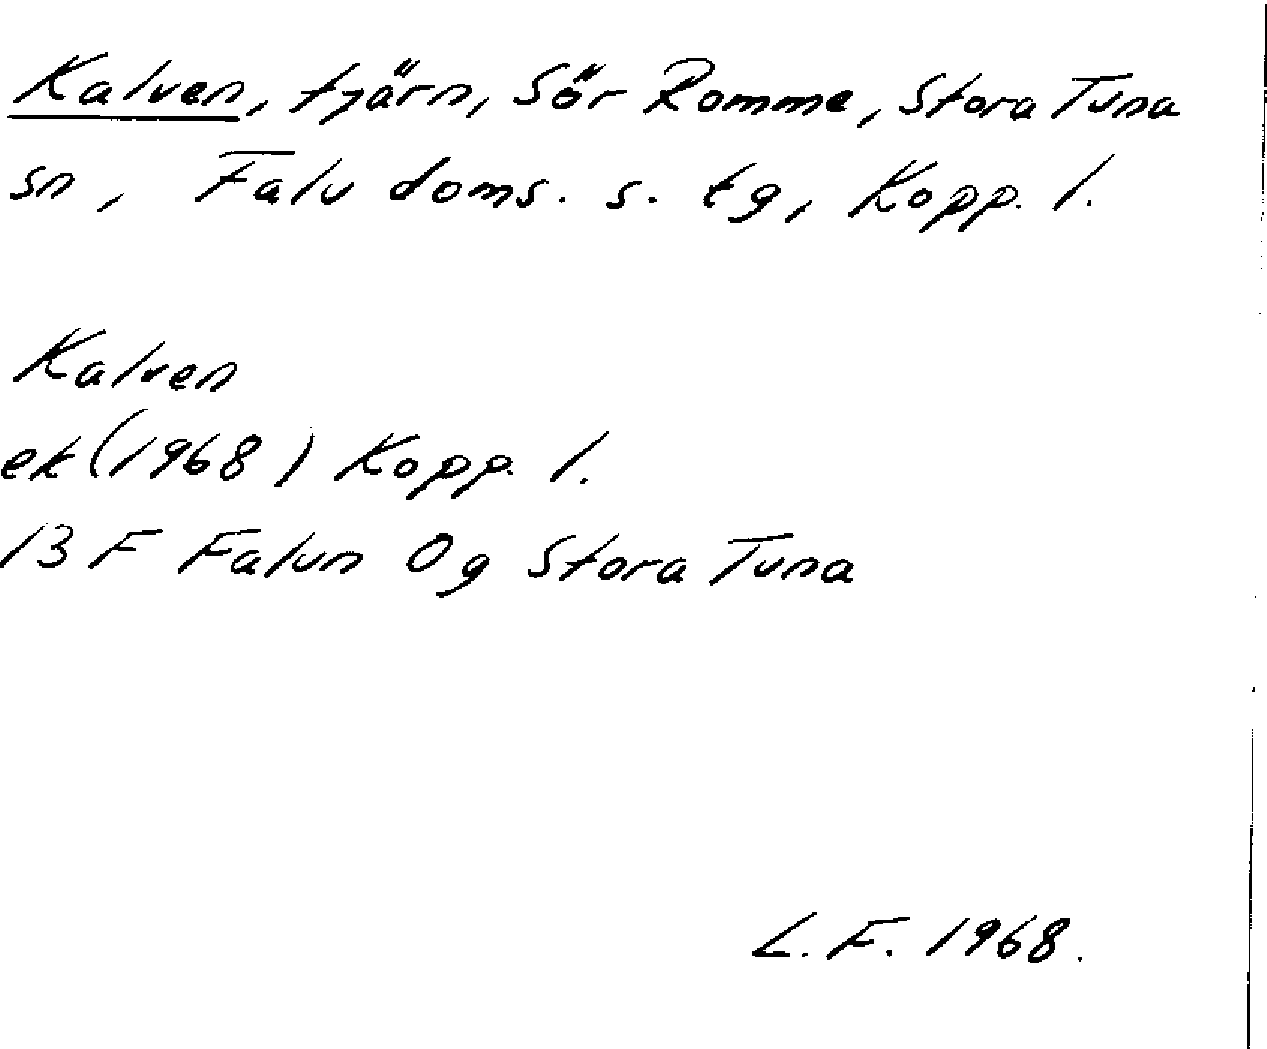 Kalven, tjärn, Sör Romme, Stora Tuna
sn, Falu doms. s. tg, Kopp. l.
Kalven
ek (1968) Kopp. l.
13 F Falun 0g Stora Tuna
L. F. 1968.